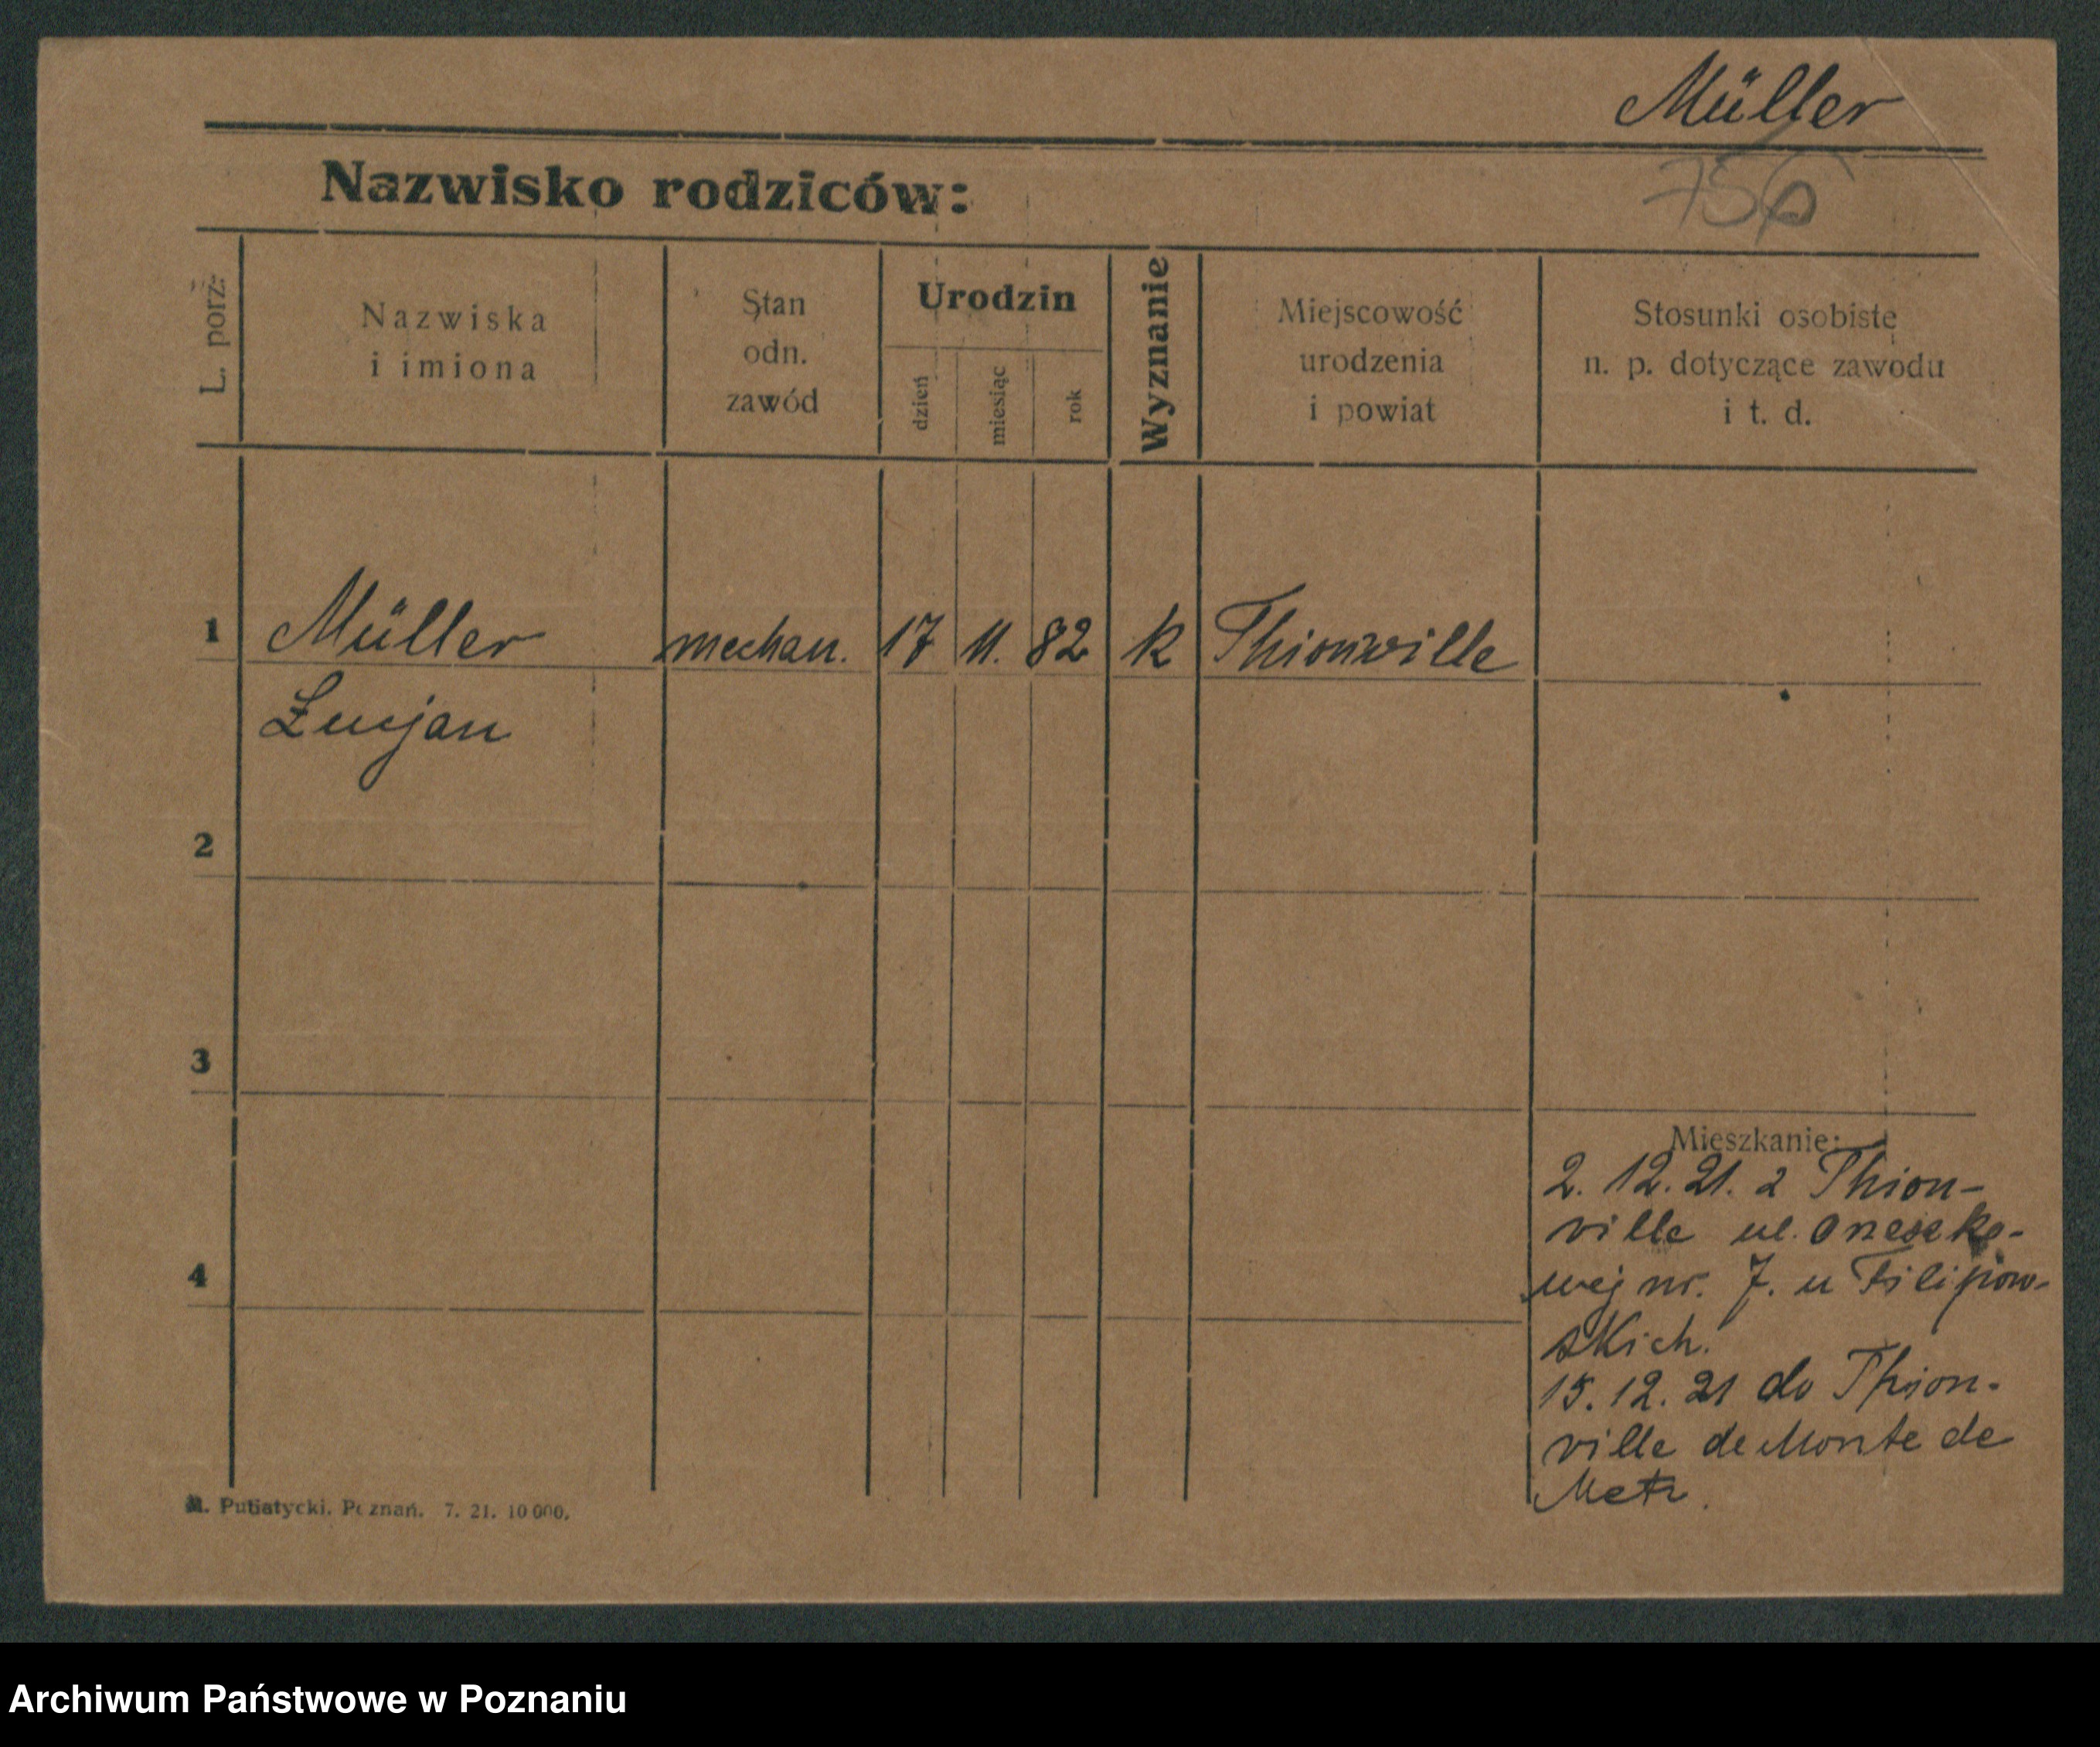 Müller
756
Nazwisko rodziców:
L. porz.
Nazwiska
i imiona
Stan
odn.
zawód
Urodzin
dzień
miesiąc
rok
Wyznanie
Miejscowość
urodzenia
i powiat
Stosunki osobiste
n. p. dotyczące zawodu
i t. d.
1 Müller mechan. 17 11. 82 k Thionville
Łucjan
2
3
4
Mieszkanie:
2. 12. 21. z Thion-
ville ul. Orzeszko-
wej nr. 7. u Filipow-
skich.
15. 12. 21 do Thion-
ville de Monte de
Metz.
M. Putiatycki. Poznań. 7. 21. 10 000.
Archiwum Państwowe w Poznaniu